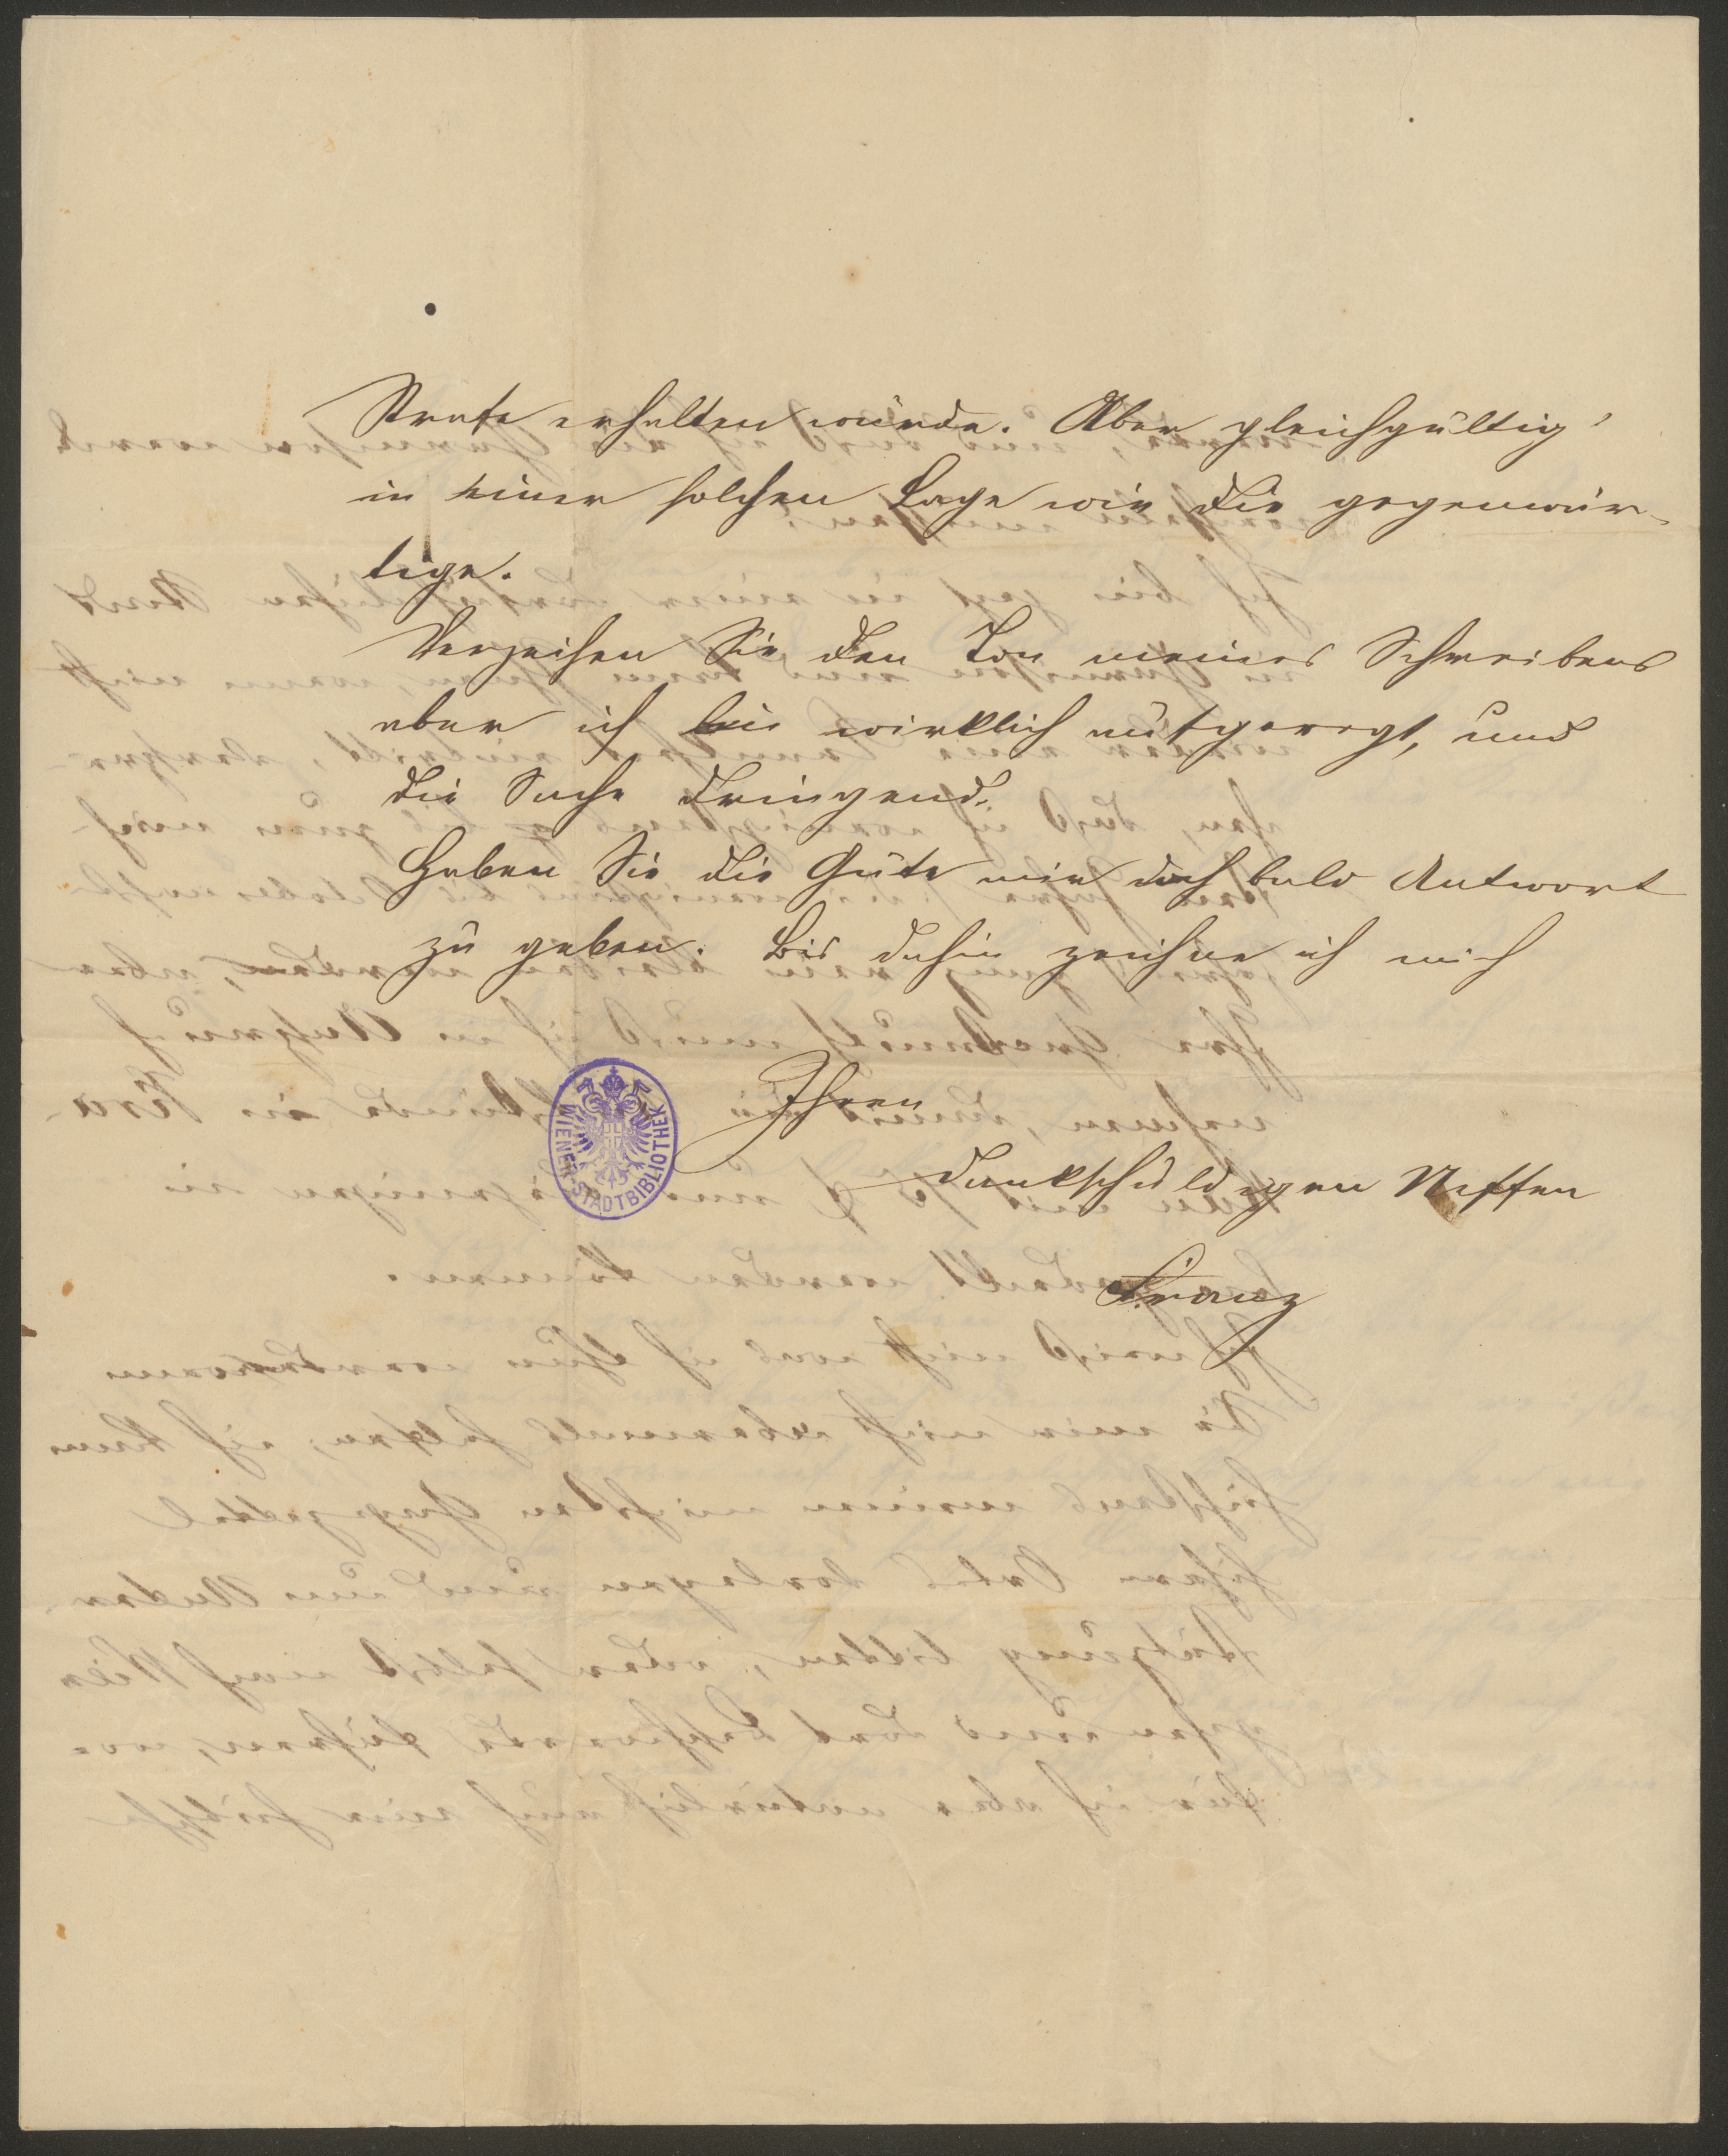 Strafe erhalten würde. Aber gleichgültig
in einer solchen Lage wie die gegenwär-
tige.
Verzeihen Sie den Ton meines Schreibens
aber ich bin wirklich aufgeregt, und
die Sache dringend.
Haben Sie die Güte mir doch bald Antwort
zu geben. Bis dahin zeichne ich mich
Ihren
dankschuldigen Neffen
Franz
WIENER STADTBIBLIOTHEK